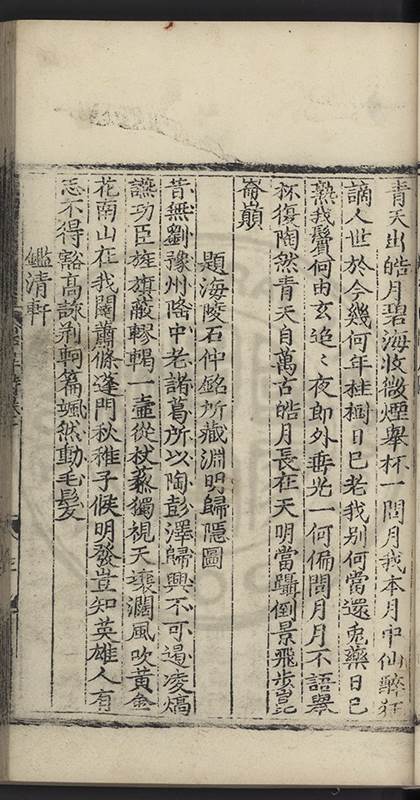 青天出皓月碧海收微煙舉杯一問月我本月中仙醉狂
謫人世於今幾何年桂樹日已老我別何當還兎藥日已
熟我鬢何由玄迢〻夜郎外垂光一何偏問月月不語舉
杯復陶然青天自萬古皓月長在天明當躡倒景飛步崑
崙巔
題海陵石仲銘所藏淵明歸隱圖
昔無劉豫州隆中老諸葛所以陶彭澤歸興不可遏凌熇
讌功臣旌旗蔽轇轕一壷從杖藜獨視天壤濶風吹黃金
花南山在我闥蕭條蓬門秋稚子候明發豈知英雄人有
志不得豁高詠荆軻篇颯然動毛髪
鑑清軒